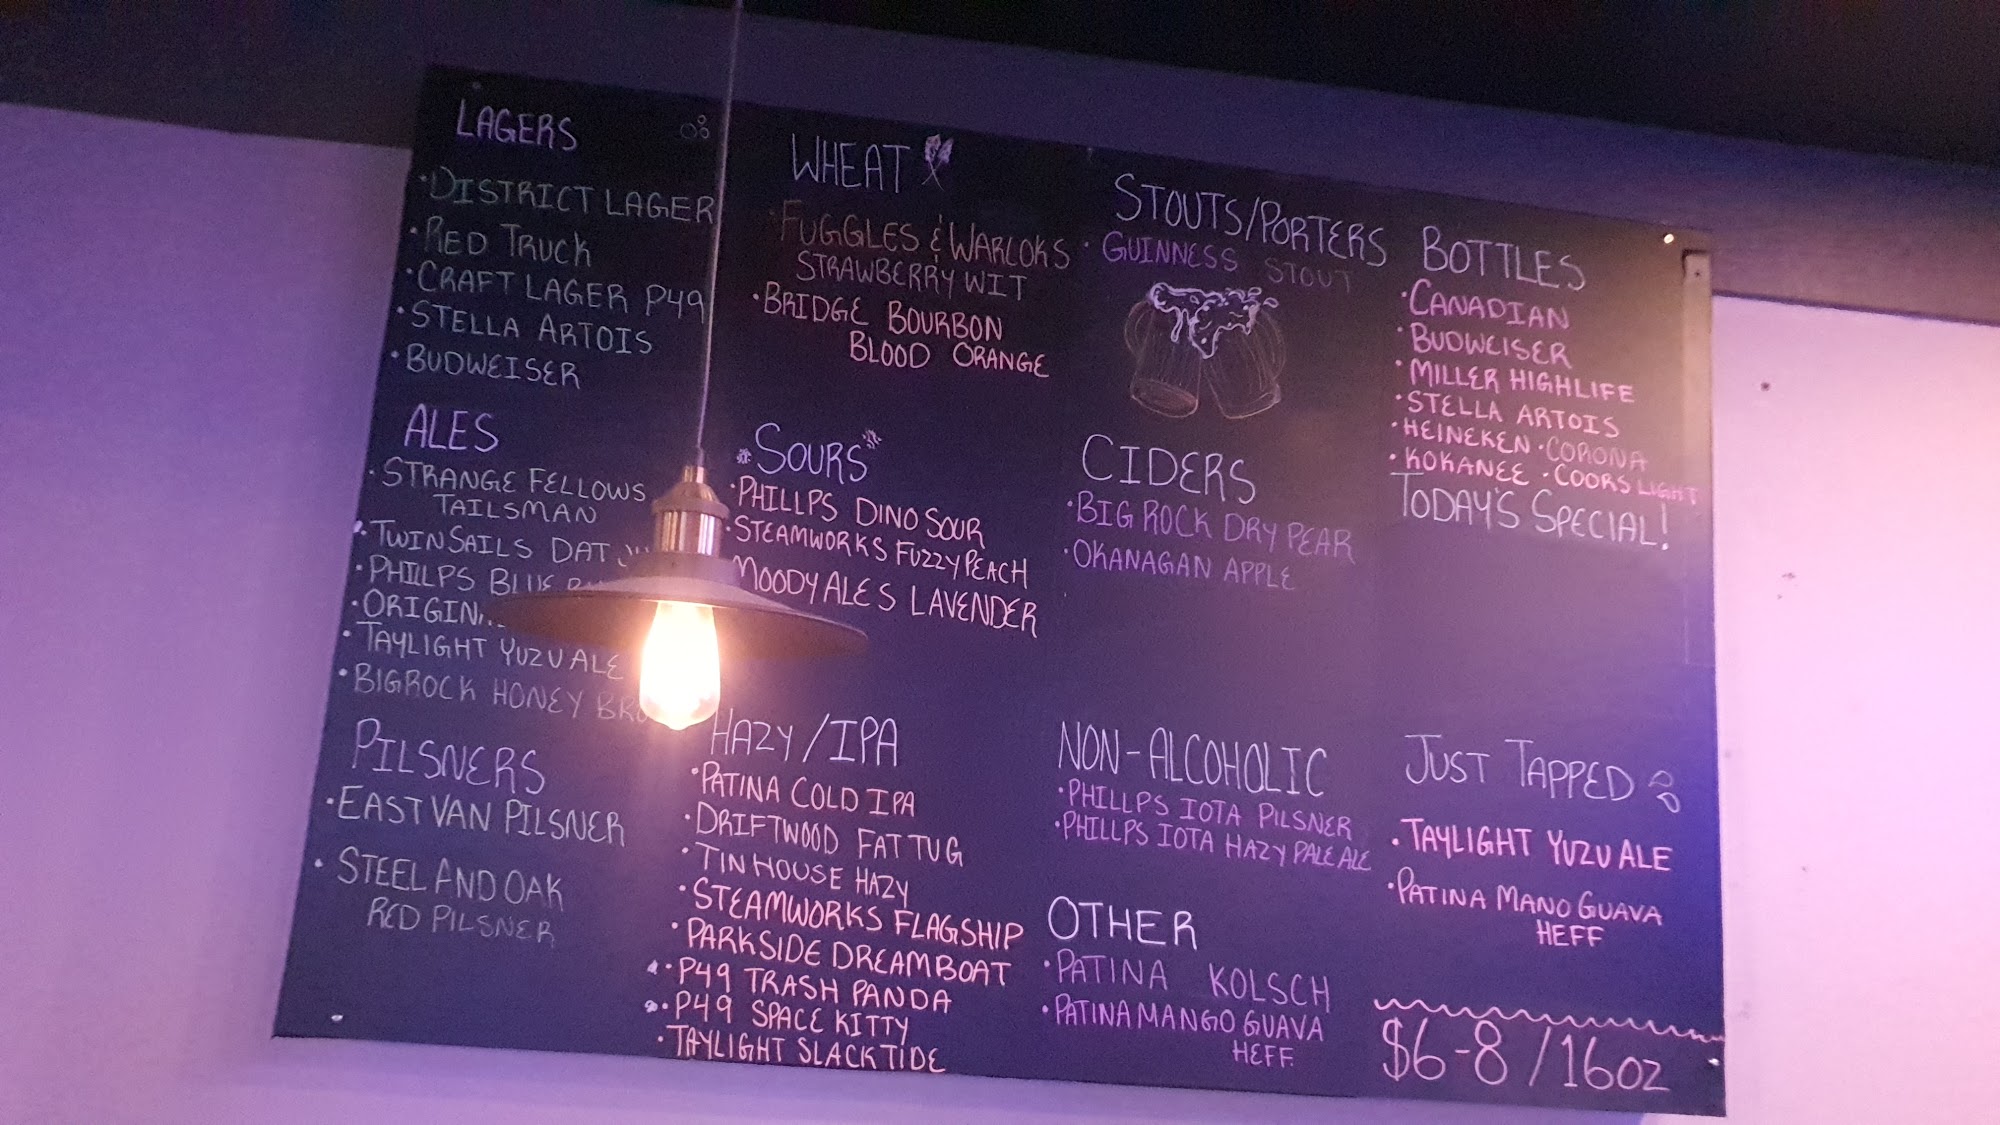 LAGERS
• DISTRICT LAGER
• RED TRUCK
• CRAFT LAGER P49
• STELLA ARTOIS
• BUDWEISER
ALES
• STRANGE FELLOWS
TAILSMAN
• TWIN SAILS DAT
• PHIILPS BLUE
•
• TAYLIGHT YUZU ALE
• BIGROCK HONEY
PILSNERS
• EAST VAN PILSNER
• STEEL AND OAK
RED PILSNER
WHEAT
• FUGGLES & WARLOKS
STRAWBERRY WIT
• BRIDGE BOURBON
BLOOD ORANGE
SOURS
• PHILLPS DINO SOUR
• STEAMWORKS FUZZY PEACH
MOODY ALES LAVENDER
HAZY/IPA
• PATINA COLD IPA
• DRIFTWOOD FAT TUG
• TIN HOUSE HAZY
• STEAMWORKS FLAGSHIP
• PARKSIDE DREAMBOAT
• P49 TRASH PANDA
• P49 SPACE KITTY
• TAYLIGHT SLACKTIDE
STOUTS/PORTERS
• GUINNESS STOUT
CIDERS
• BIG ROCK DRY PEAR
• OKANAGAN APPLE
NON-ALCOHOLIC
• PHILLPS IOTA PILSNER
• PHILLPS IOTA HAZY PALE ALE
OTHER
• PATINA KOLSCH
• PATINA MANGO GUAVA
HEFF.
BOTTLES
• CANADIAN
• BUDWEISER
• MILLER HIGHLIFE
• STELLA ARTOIS
• HEINEKEN • CORONA
• KOKANEE • COORS LIGHT
TODAY'S SPECIAL!
JUST TAPPED
• TAYLIGHT YUZU ALE
• PATINA MANO GUAVA
HEFF
$6-8/16OZ